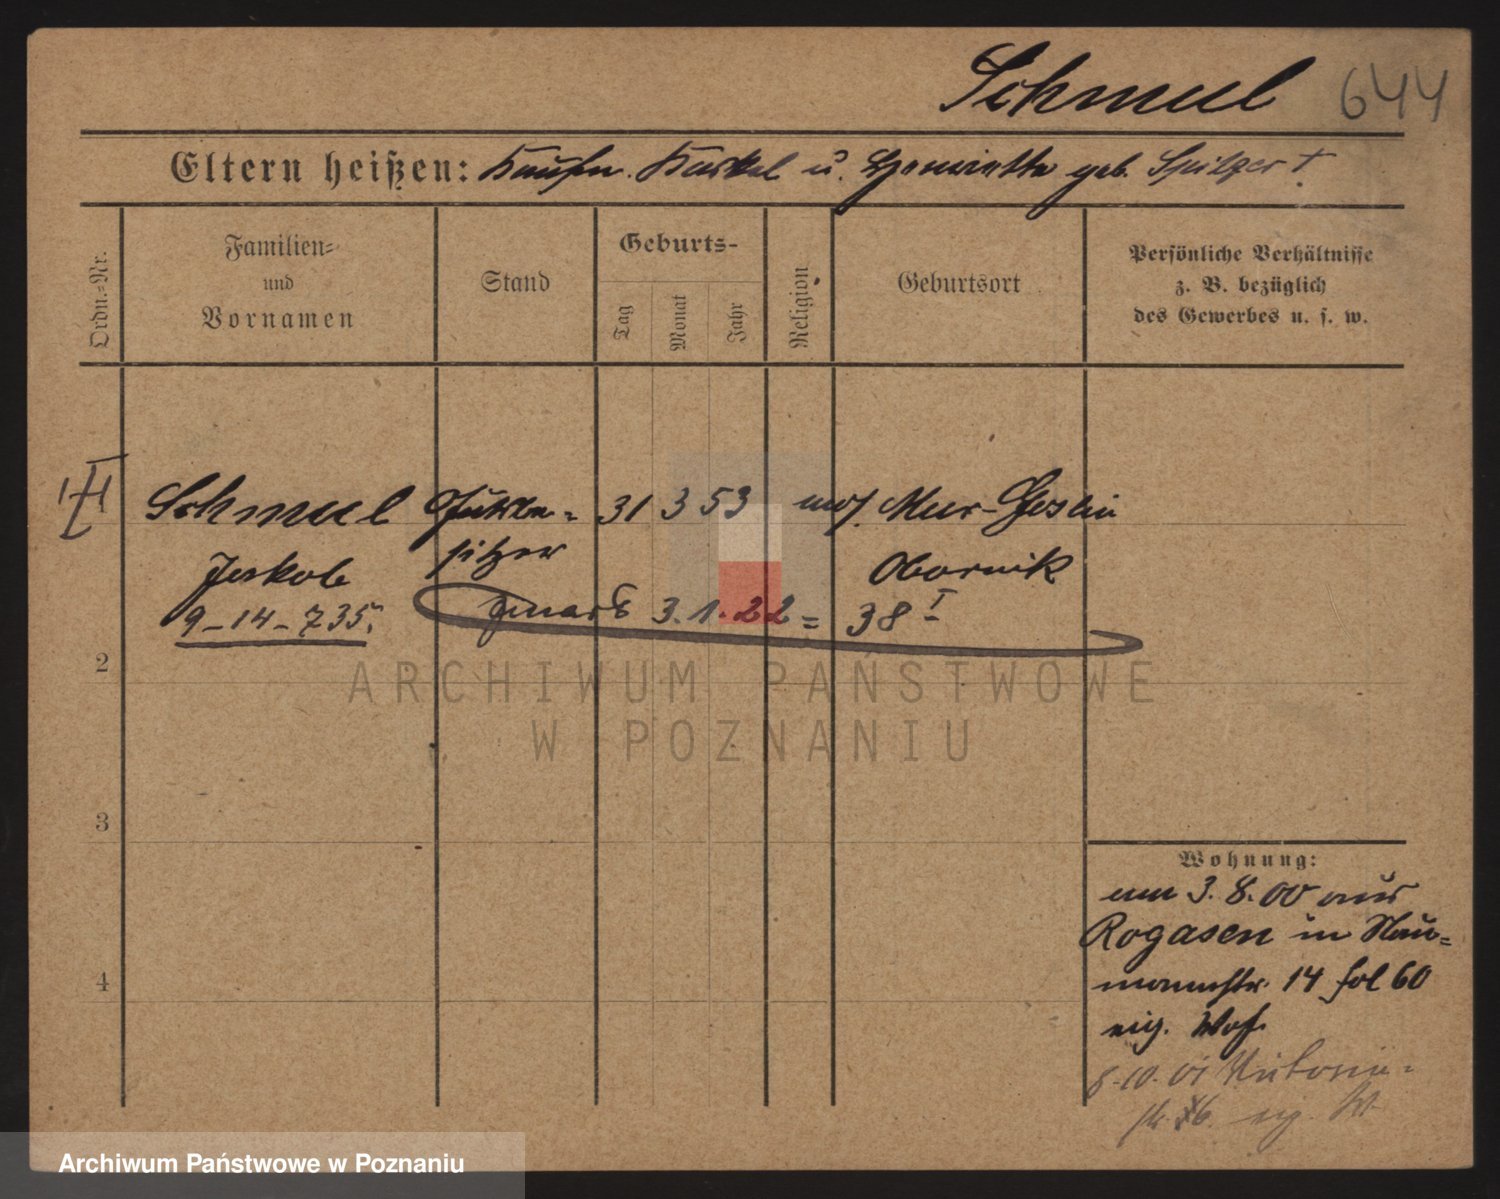 Schmul 644
Eltern heißen: Kaufm. Haskel u. Henriette geb. Spitzer †.
Ordn.=Nr.
Familien=
und
Vornamen
Stand
Geburts-
Tag
Monat
Jahr
Religion
Geburtsort
Persönliche Verhältnisse
z. B. bezüglich
des Gewerbes u. s. w.
1 Schmul Gutsbe= 31 3 53 mos. Mur-Goslin
Jakob sitzer Obornik
9-14-735. 3.1.22 = 38 I
2
3
4
Wohnung:
am 3.8.00 aus
Rogasen in Nau=
mannstr. 14 fol 60
eig. Woh.
8.10.01 Viktoria=
str.
ARCHIWUM PAŃSTWOWE
W POZNANIU
Archiwum Państwowe w Poznaniu